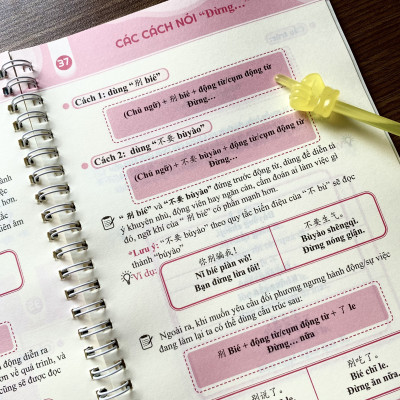 37
CÁC CÁCH NÓI "Đừng..."
Cách 1: dùng "别 bié"
(Chủ ngữ) + 别 bié + động từ/cụm động từ
Đừng...
Cách 2: dùng "不要 bùyào"
(Chủ ngữ) + 不要 bùyào + động từ/cụm động từ
Đừng...
"别 bié" và "不要 bùyào" đứng trước động từ, dùng để diễn tả
ý khuyên nhủ, động viên hay ngăn cản, cấm đoán ai làm việc gì
đó, ngữ khí của "别 bié" có phần mạnh hơn.
*Lưu ý: "不要 bùyào" theo quy tắc biến điệu của "不 bù" sẽ đọc
thành "búyào"
Ví dụ:
你别骗我!
Nǐ bié piàn wǒ!
Bạn đừng lừa tôi!
不要生气。
Bùyào shēngqì.
Đừng nóng giận.
Ngoài ra, khi muốn yêu cầu đối phương ngưng hành động/sự việc
đang làm lại ta có thể dùng cấu trúc sau:
别 Bié + động từ/cụm động từ + 了 le
Đừng... nữa
别说了。
别吃了。
Bié chī le.
Đừng ăn nữa.
hơn.
động diễn ra
quá trình, và
cũng sẽ được đọc